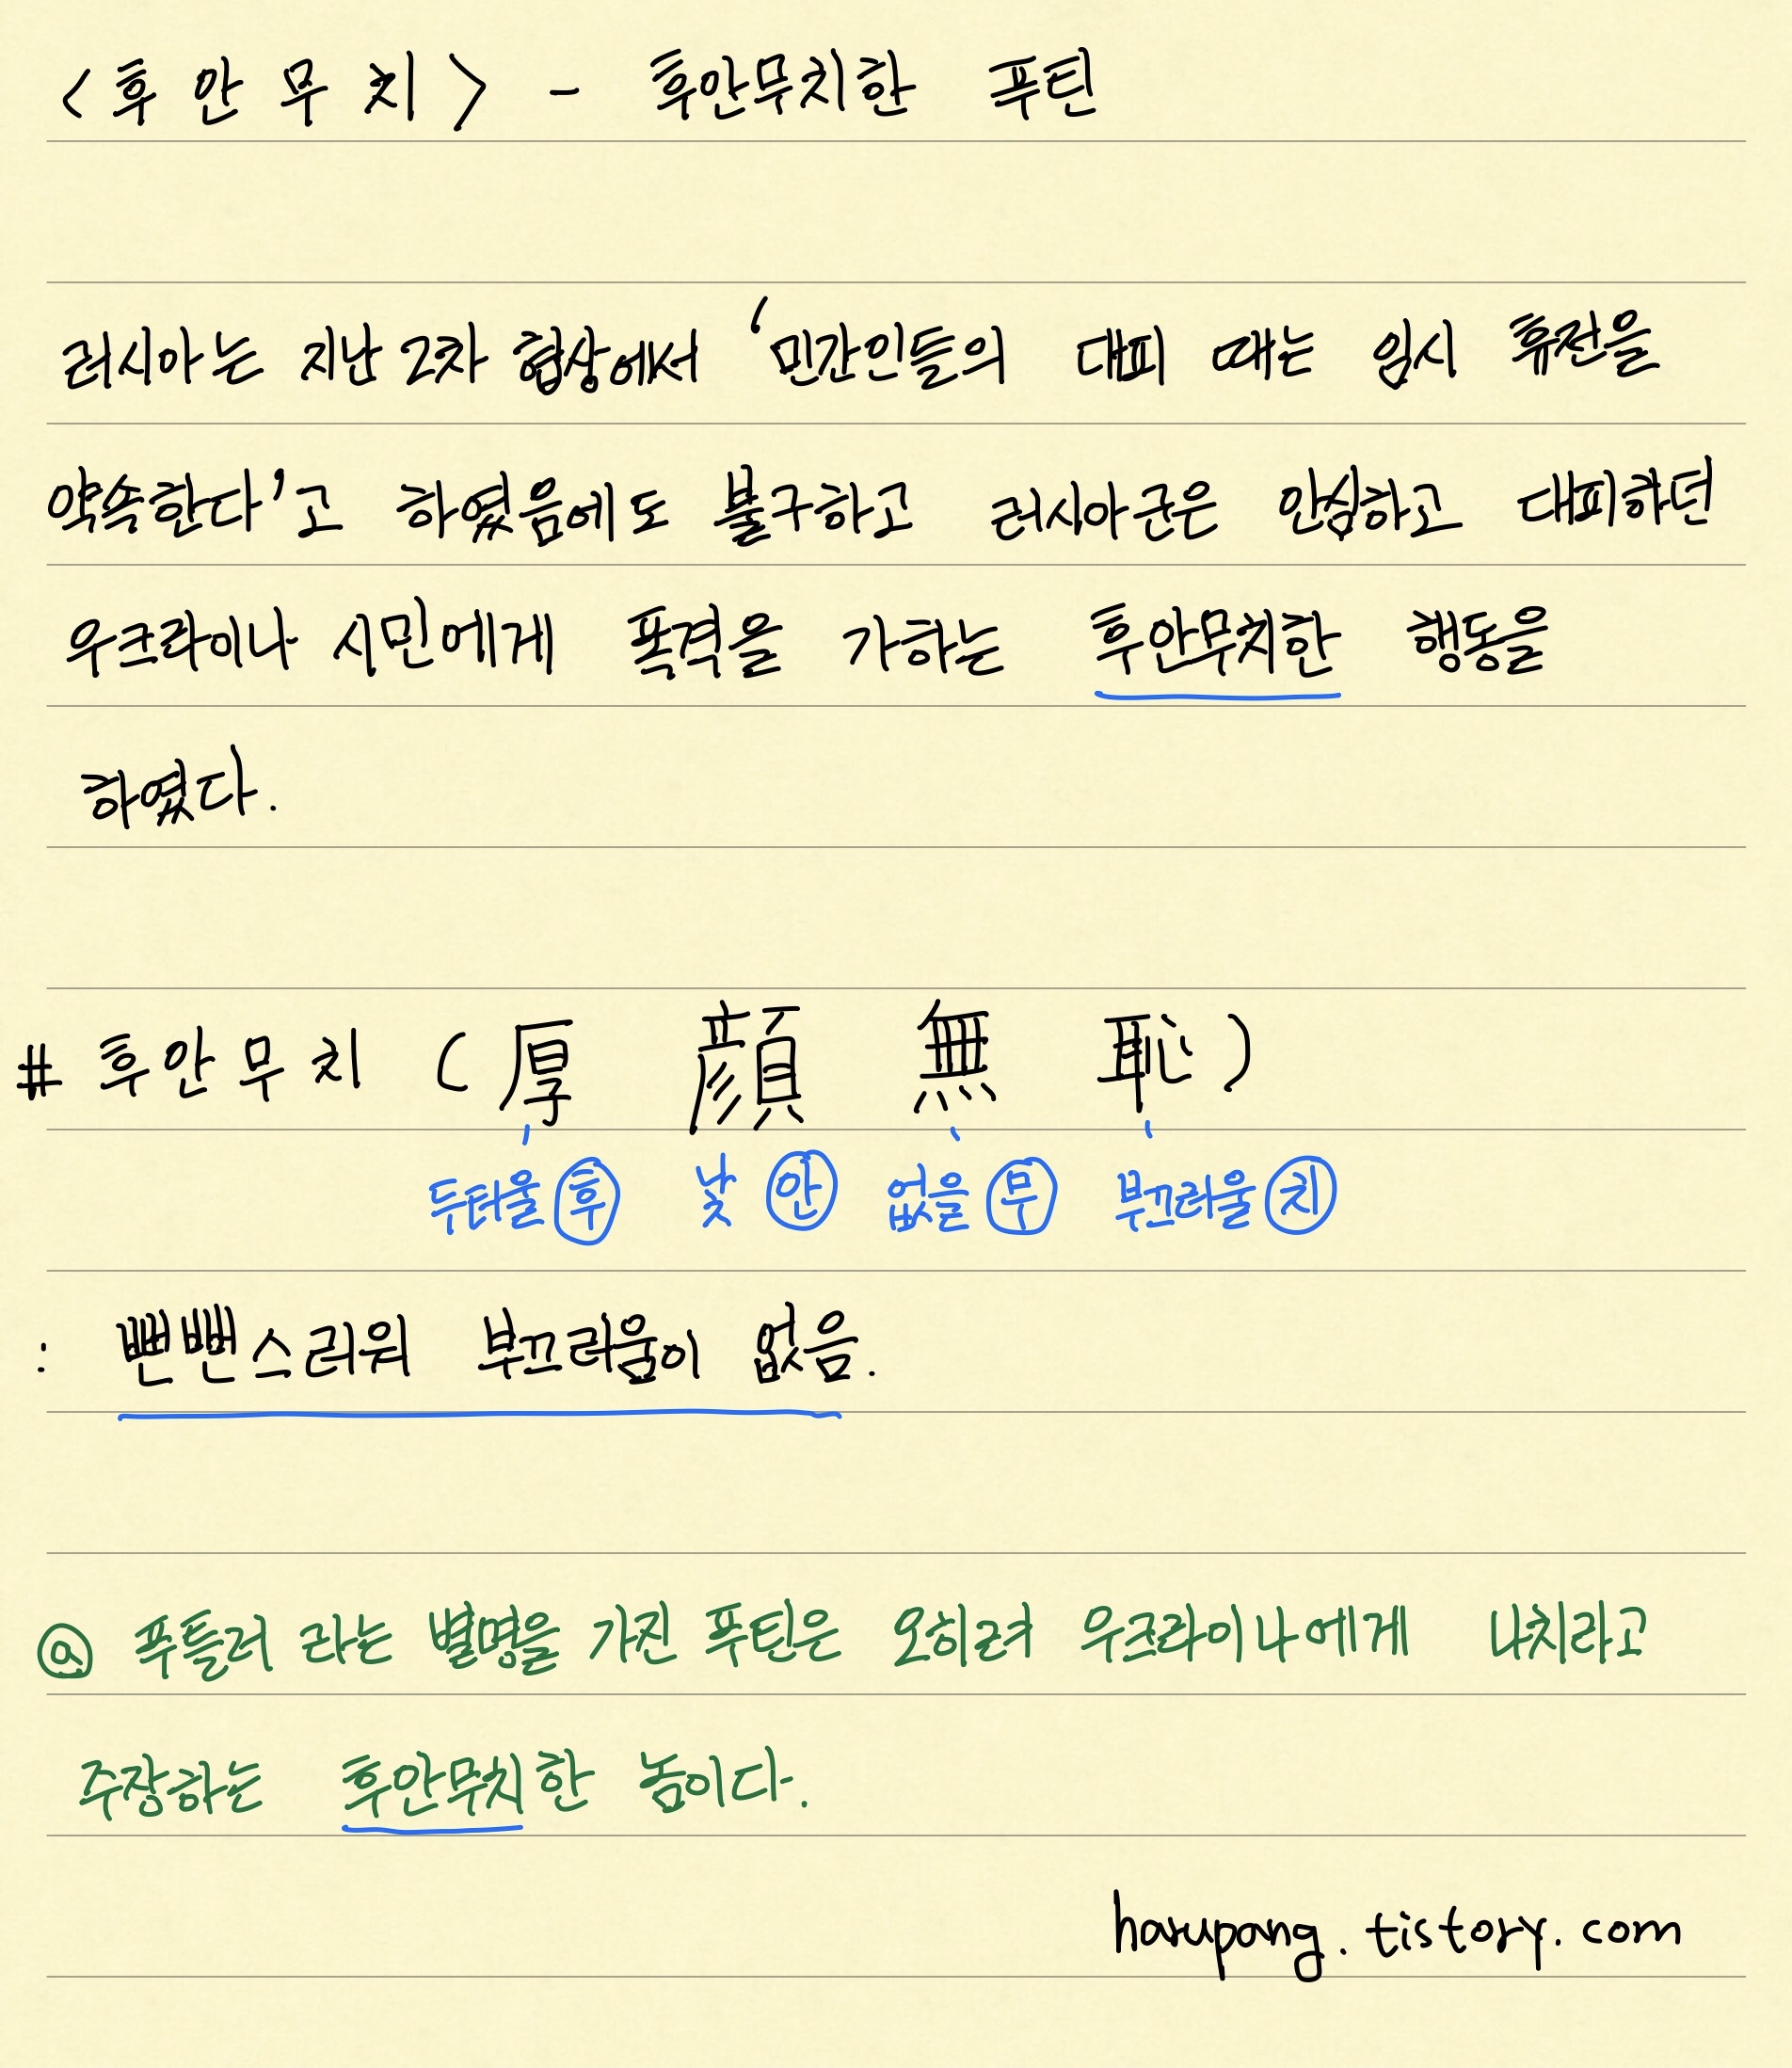 <후안무치> - 후안무치한 푸틴
러시아는 지난 2차 협상에서 '민간인들의 대피 때는 임시 휴전을
약속한다'고 하였음에도 불구하고 러시아군은 안심하고 대피하던
우크라이나 시민에게 폭격을 가하는 후안무치한 행동을
하였다.
# 후안무치 (厚 顔 無 恥)
두터울 후 낯 안 없을 무 부끄러울 치
: 뻔뻔스러워 부끄러움이 없음.
@ 푸틀러 라는 별명을 가진 푸틴은 오히려 우크라이나에게 나치라고
주장하는 후안무치한 놈이다.
harupang.tistory.com